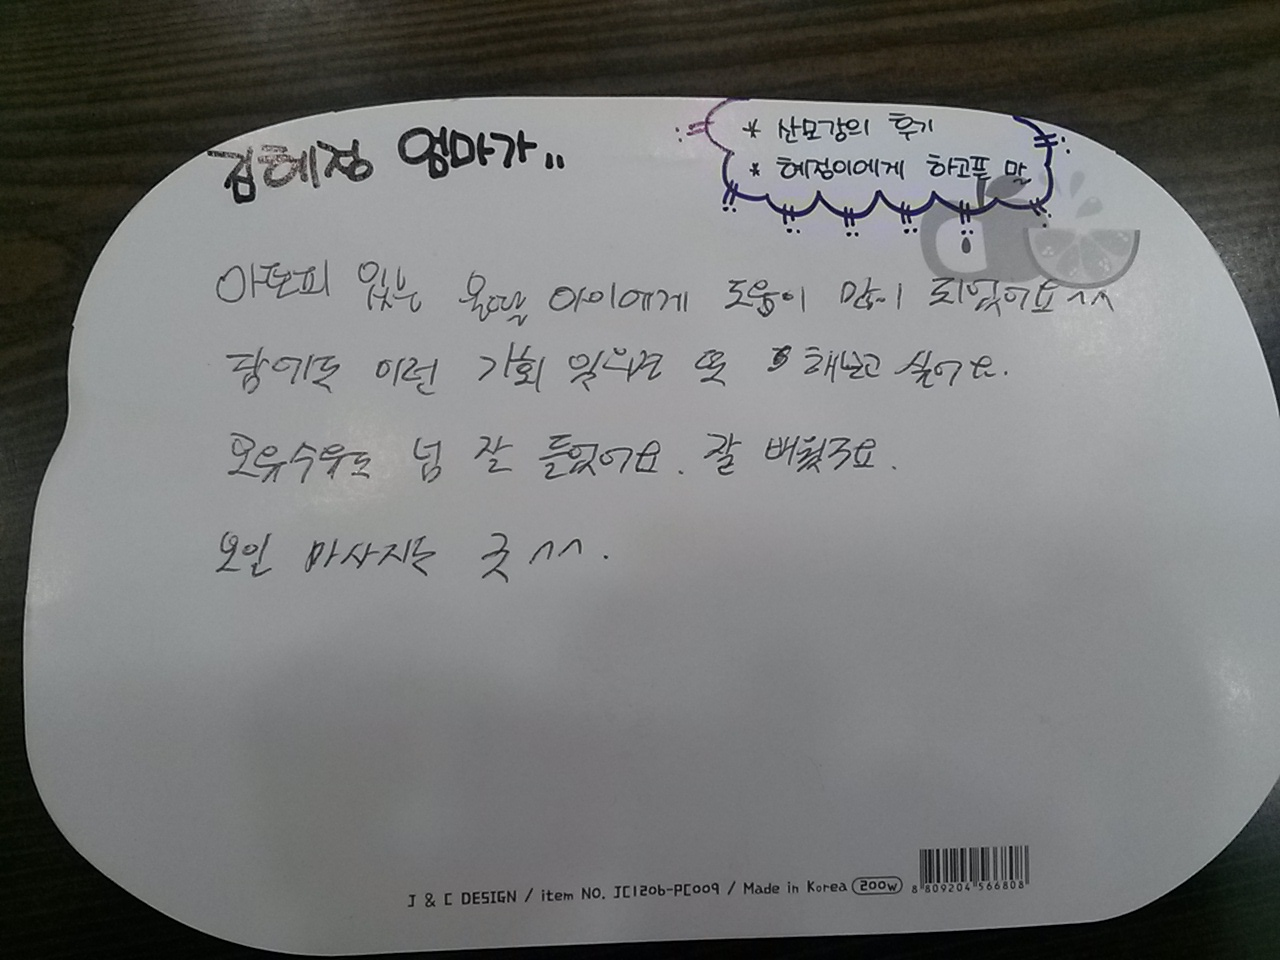 김혜정 엄마가..
* 산모강의 후기
* 혜정이에게 하고픈 말
아토피 있는 울딸 아이에게 도움이 많이 되었어요^^
담에도 이런 기회 있으면 또 해보고 싶어요.
모유수유도 넘 잘 들었어요. 잘 배웠구요.
오일 마사지는 굿^^.
J & C DESIGN / item NO. JC1206-PC009 / Made in Korea 200w
8 809204 566808